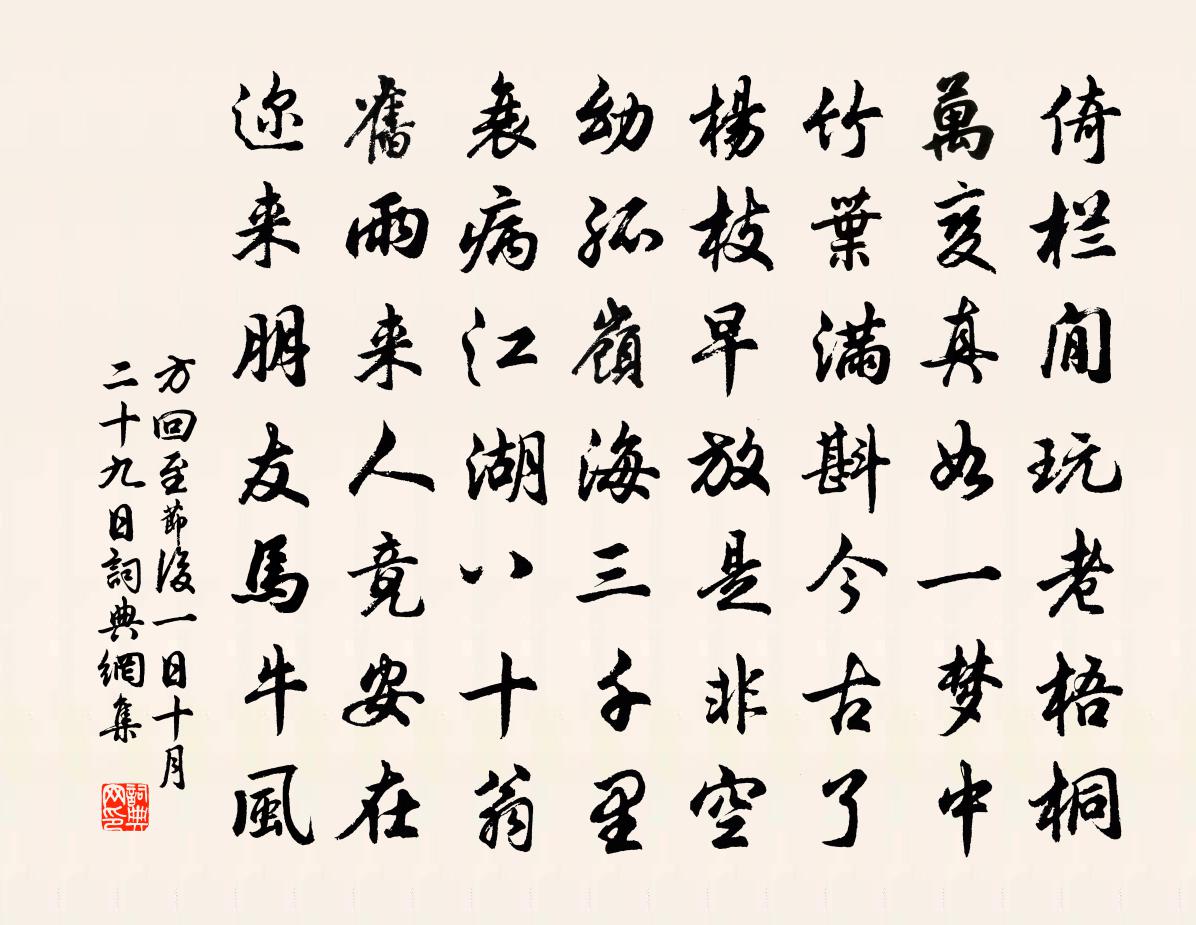 倚栏閒玩老梧桐
萬变真如一梦中
竹葉滿斟今古了
楊枝早放是非空
幼孤嶺海三千里
衰病江湖八十翁
舊雨来人竟安在
迩来朋友馬牛風
方回至節後一日十月
二十九日詞典網集
詞典网印